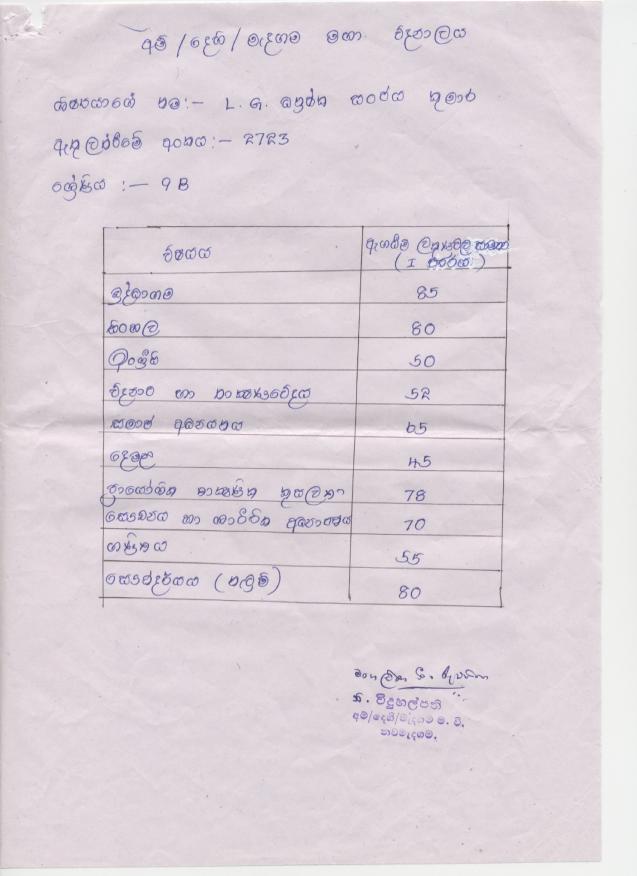 අම් / දෙහි / මැදගම මහා විද්‍යාලය
ශිෂ්‍යයාගේ නම :- L. G. සංජය කුමාර
ඇතුලත්වීමේ අංකය :- 2723
ශ්‍රේණිය :- 9 B
විෂයය
ඇගයීම් ලකුණුවල
( I වාරය )
බුද්ධාගම 85
සිංහල 80
ඉංග්‍රීසි 50
විද්‍යාව හා තාක්ෂණවේදය 52
සමාජ අධ්‍යයනය 65
දෙමළ 45
ප්‍රායෝගික තාක්ෂණික කුසලතා 78
සෞඛ්‍යය හා ශාරීරික අධ්‍යාපනය 70
ගණිතය 55
සෞන්දර්යය ( නැටුම් ) 80
නි. විදුහල්පති
අම්/දෙහි/මැදගම ම. වි.
නවමැදගම.